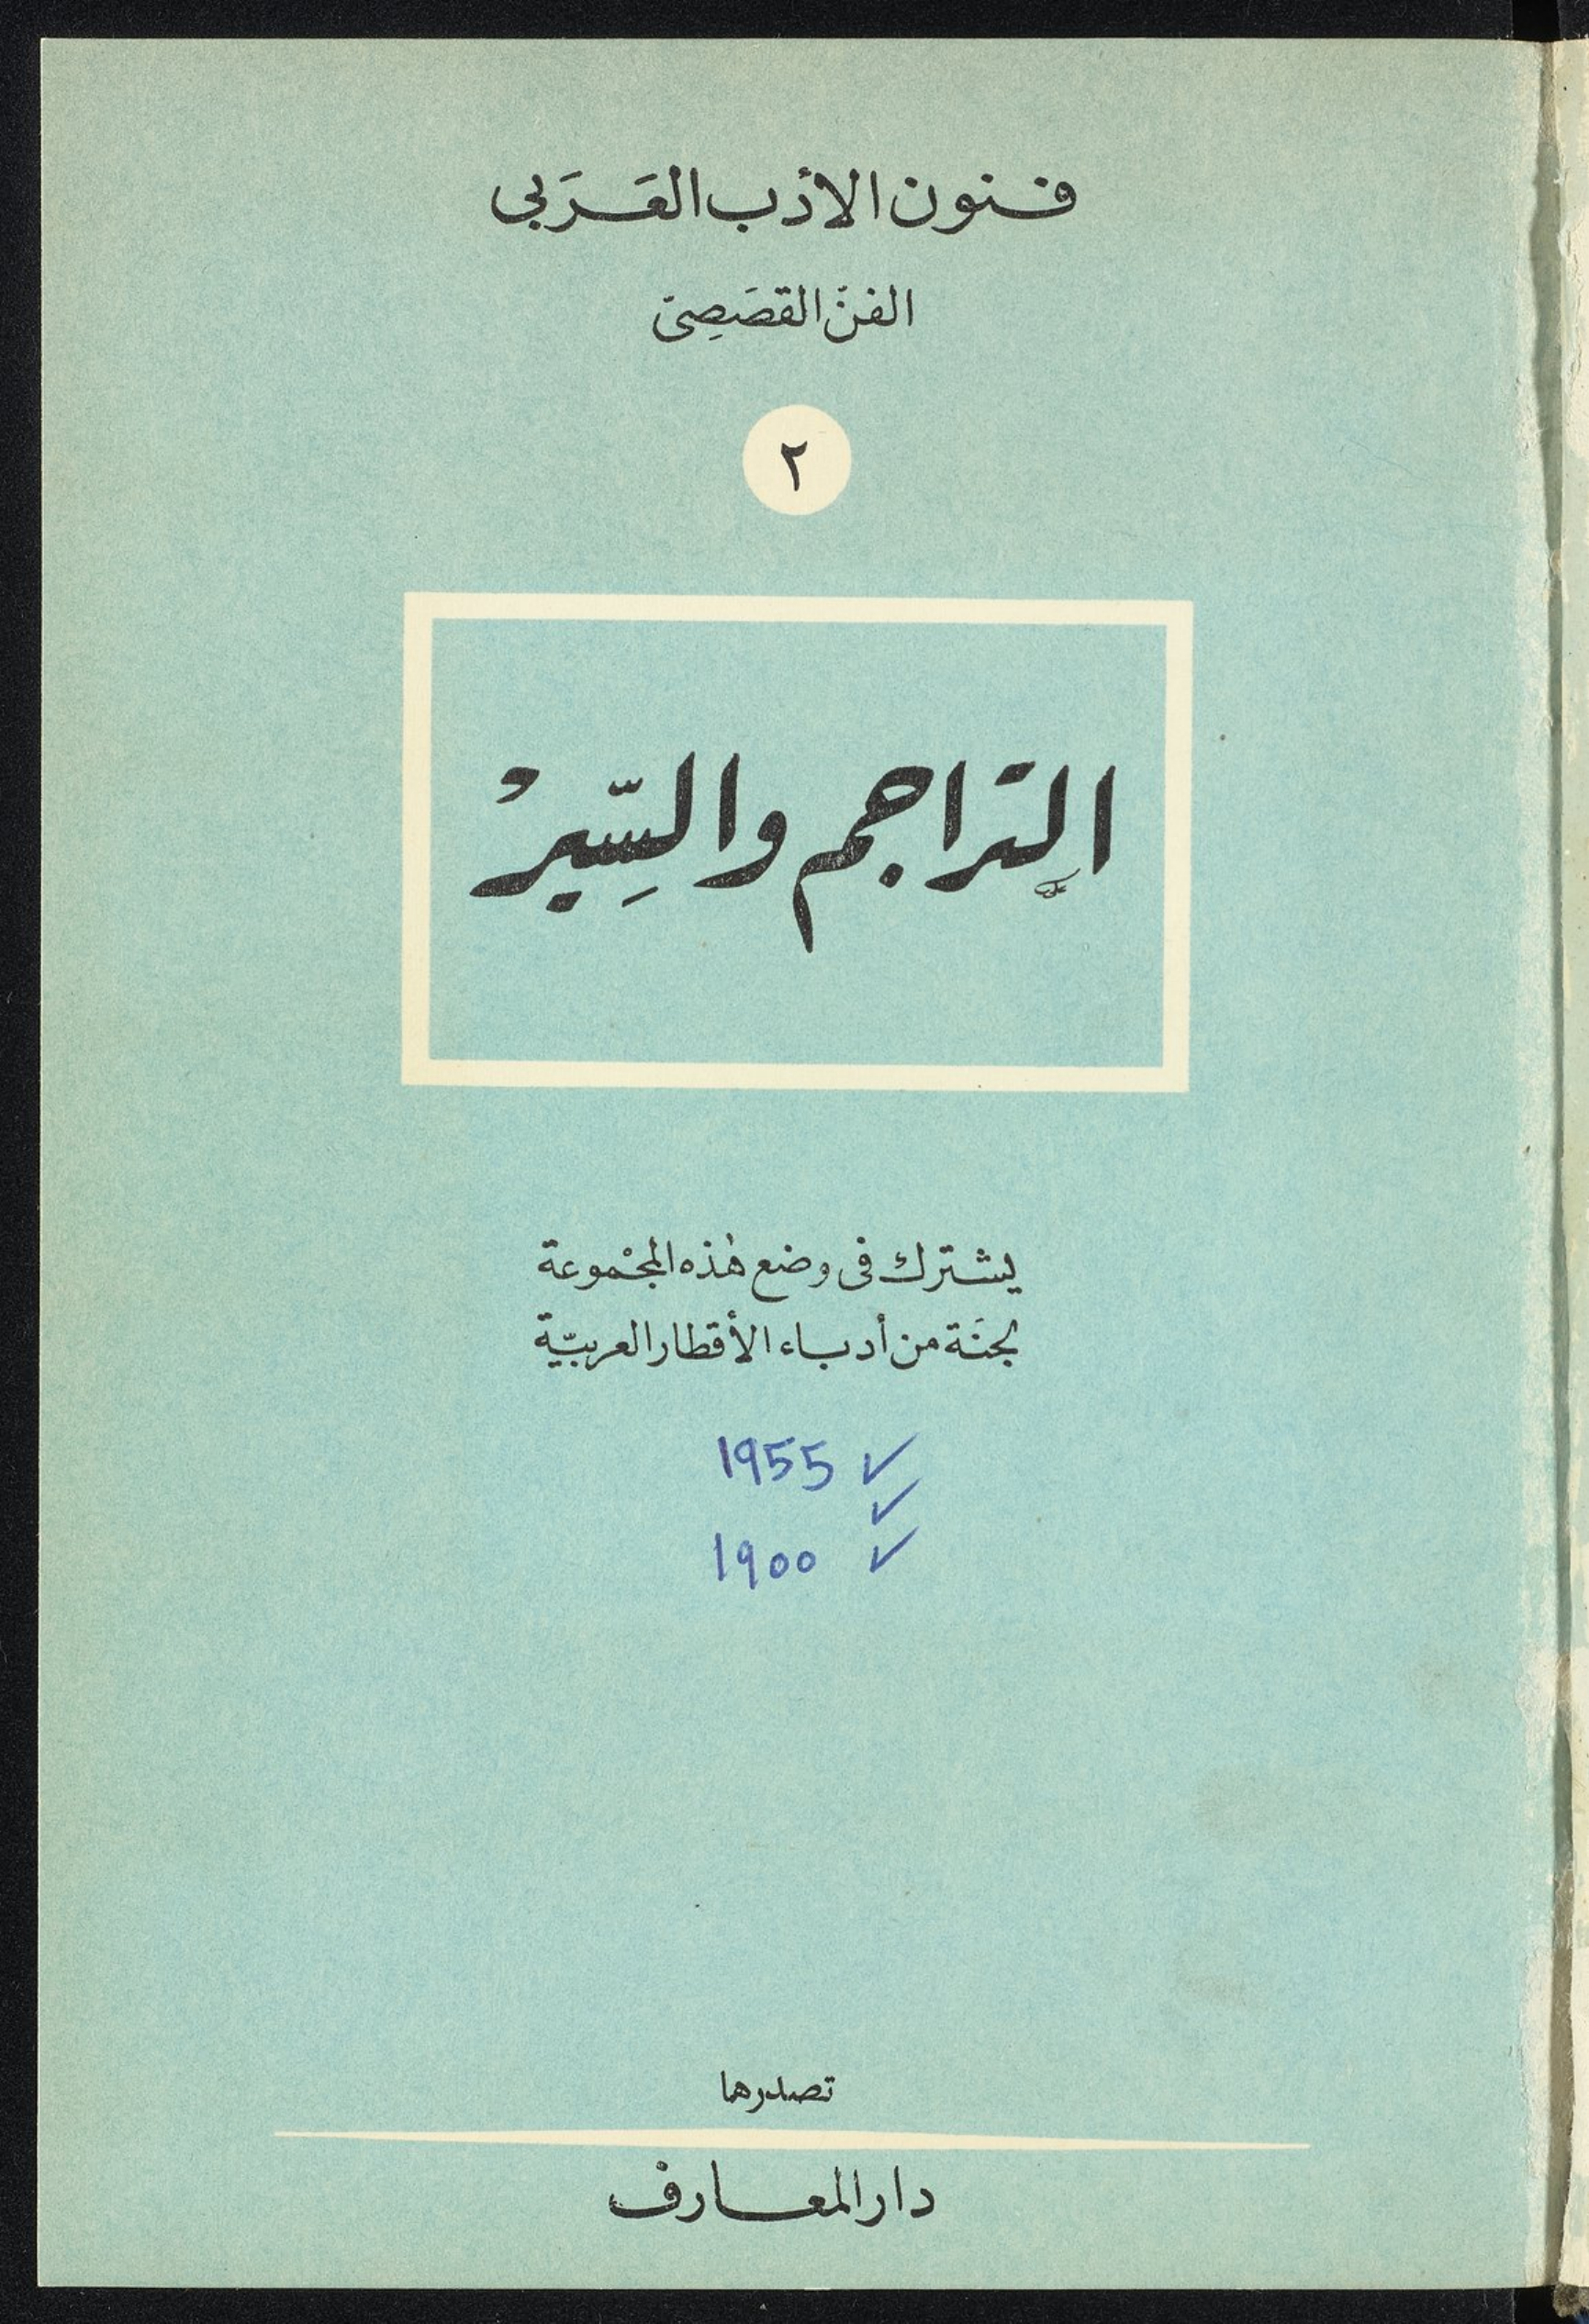 فنون الأدب العَرَبى
الفنّ القصَصِىّ
٢
التراجم والسِّيَرْ
يشترك فى وضع هٰذه المجْموعة
لجنَة من أدباء الأقطار العربيّة
1955 ✓
✓
1900 ✓
تصدرها
دار المعارف